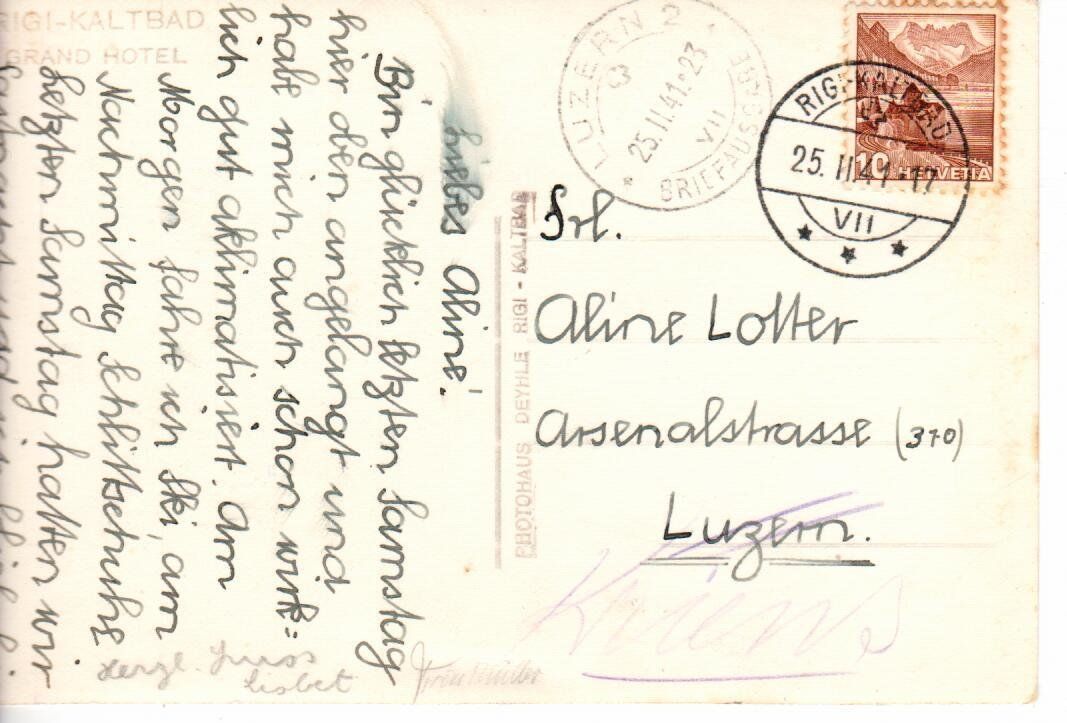 RIGI-KALTBAD
GRAND HOTEL
Liebes Aline!
Bin glücklich letzten Samstag
hier oben angelangt und
habe mich auch schon wirk=
lich gut aklimatisiert. Am
Morgen fahre ich Ski, am
Nachmittag Schlittschuhe
Letzten Samstag hatten wir
herzl. Gruss
Lisbet
PHOTOHAUS DEYHLE RIGI - KALTBAD
LUZERN 2
25.II.41.23
VII
BRIEFAUSGABE
RIGI-KALTBAD
25.II.41-17
VII
10 HELVETIA
Frl.
Aline Lotter
Arsenalstrasse (370)
Luzern.
Kriens